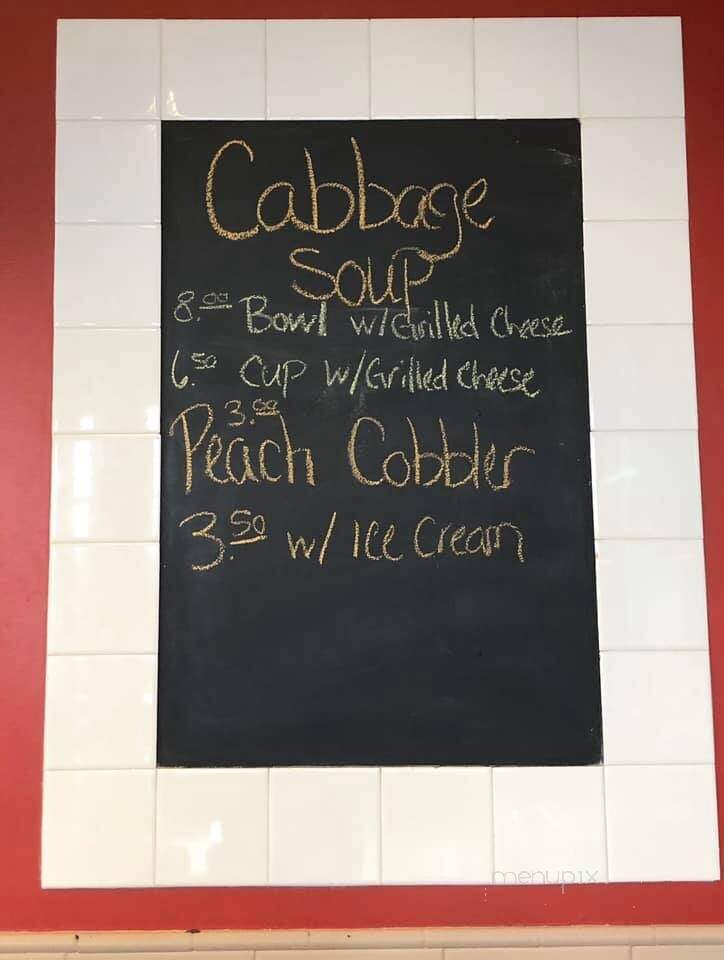 Cabbage
Soup
8.00 Bowl w/Grilled Cheese
6.50 Cup w/Grilled Cheese
3.00
Peach Cobbler
3.50 w/ Ice Cream
menupix